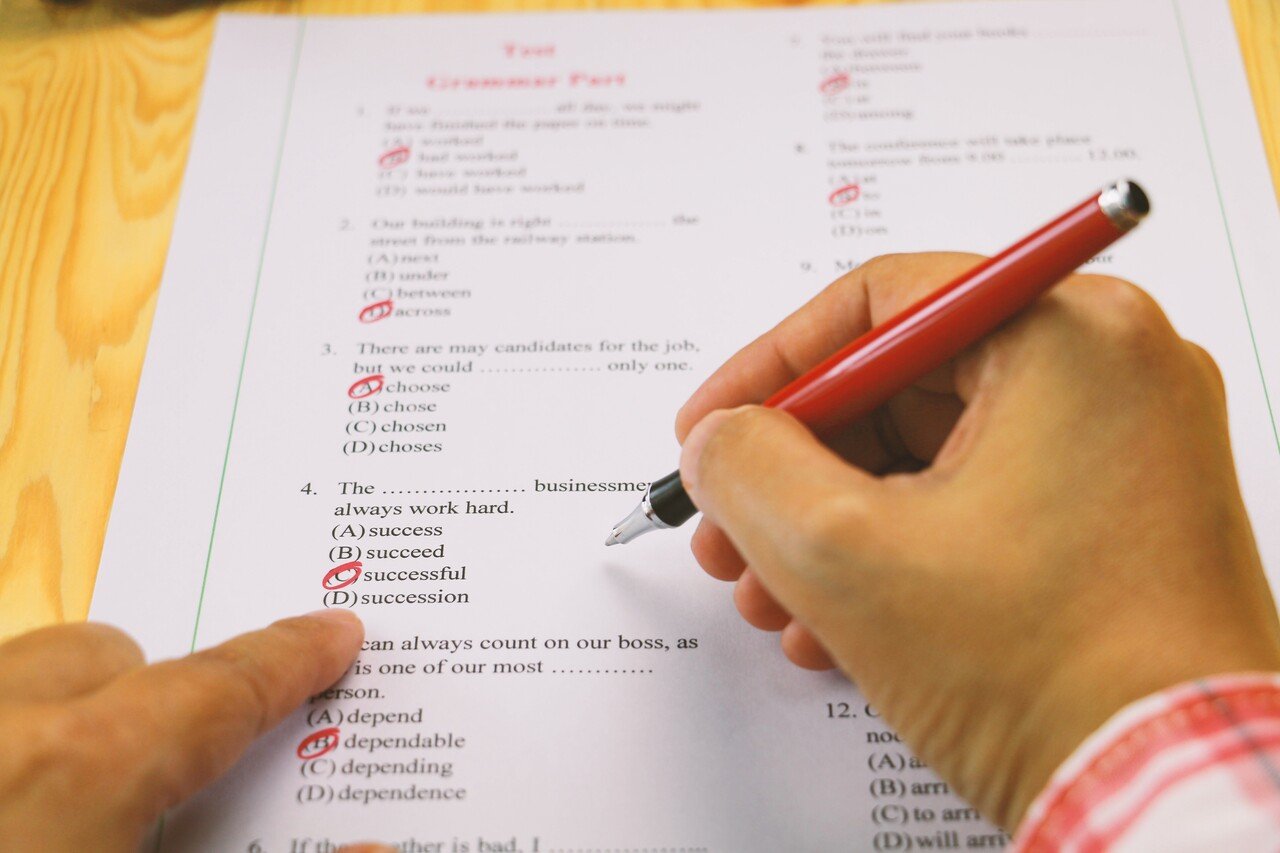 Test
Grammar Part
1. If we .................... all day, we might
have finished the paper on time.
(A) worked
(B) had worked
(C) have worked
(D) would have worked
2. Our building is right .................. the
street from the railway station.
(A) next
(B) under
(C) between
(D) across
3. There are may candidates for the job,
but we could ............... only one.
(A) choose
(B) chose
(C) chosen
(D) choses
4. The .................. businessme
always work hard.
(A) success
(B) succeed
(C) successful
(D) succession
can always count on our boss, as
is one of our most .............
person.
(A) depend
(B) dependable
(C) depending
(D) dependence
6. If the ather is bad, I ....................
You will find your books ....................
the drawer.
(D) among
8. The conference will take place
tomorrow from 9.00 ............ 12.00.
(A) at
(B) to
(C) in
(D) on
9.
12.
(A) a
(B) arri
(C) to arri
(D) will arri